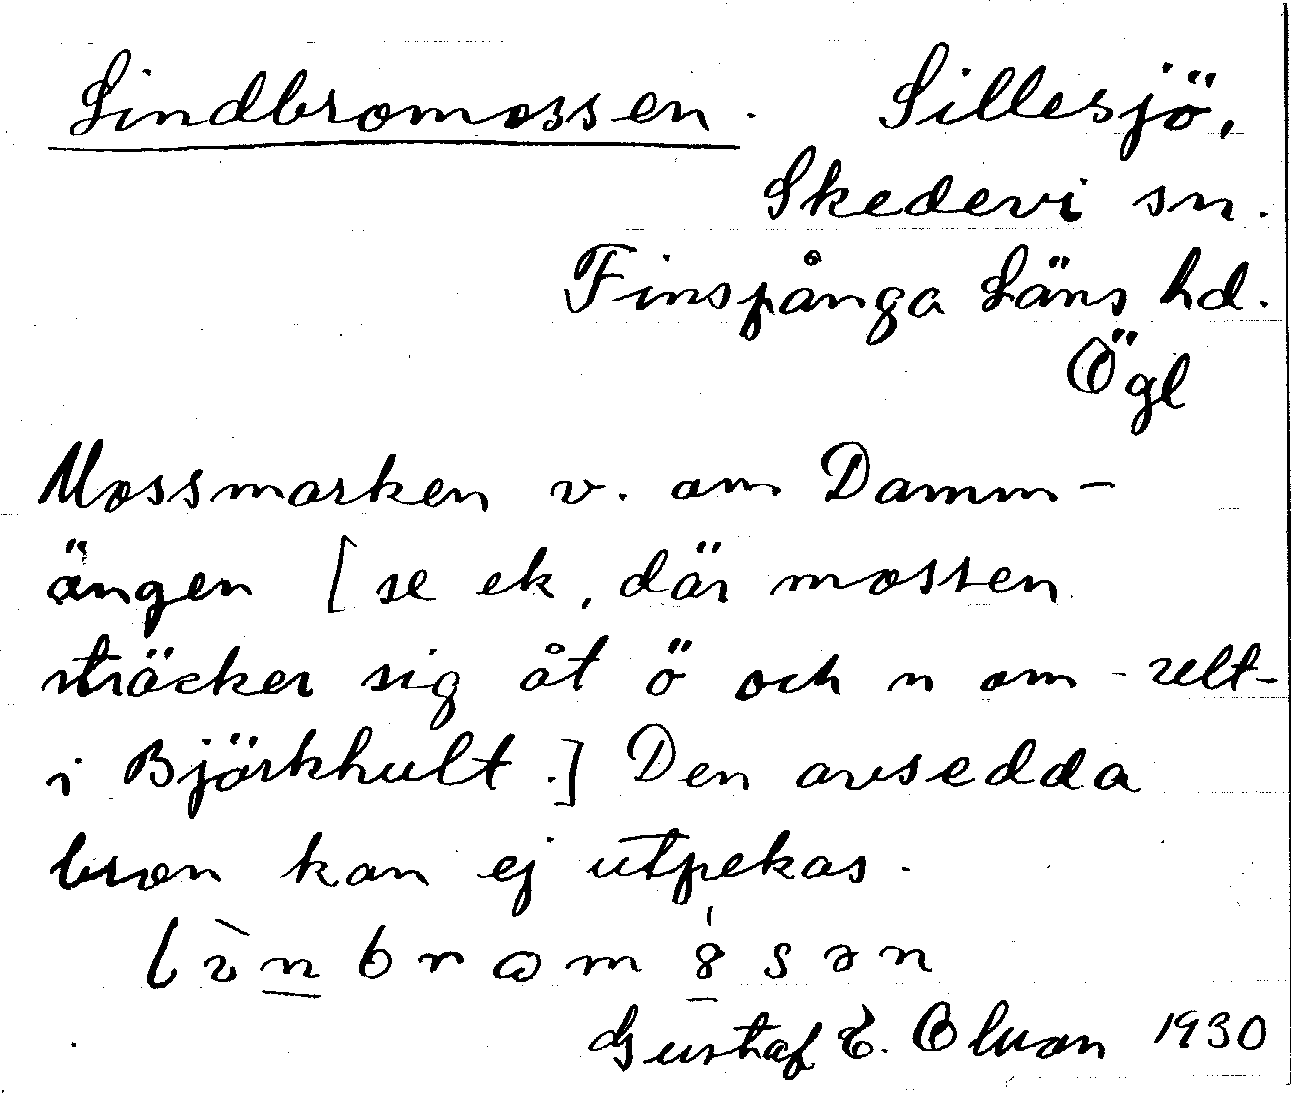 Lindbromossen. Sillesjö,
Skedevi sn.
Finspånga Läns hd.
Ögl
Mossmarken v. om Damm-
ängen [se ek, där mossen
sträcker sig åt ö och n om -relt-
i Björkhult.] Den avsedda
bron kan ej utpekas.
Gustaf E. Olsson 1930